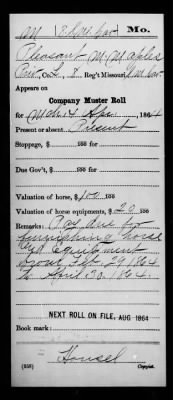 M | 8 | Mo.
Pleasant M. Maples
Pvt, Co. L, 8 Reg't Missouri
Appears on
Company Muster Roll
for Mch & Apr, 1864
Present or absent Present
Stoppage, $ 100
Due Gov't, $ 100
Valuation of horse, $ 100 100
Valuation of horse equipments, $ 20 100
Remarks: Pay due for
furnishing horse
and equipment
from Feb. 29 1864
to April 30, 1864.
NEXT ROLL ON FILE, AUG 1864
Book mark:
Housel
(358) Copyist.